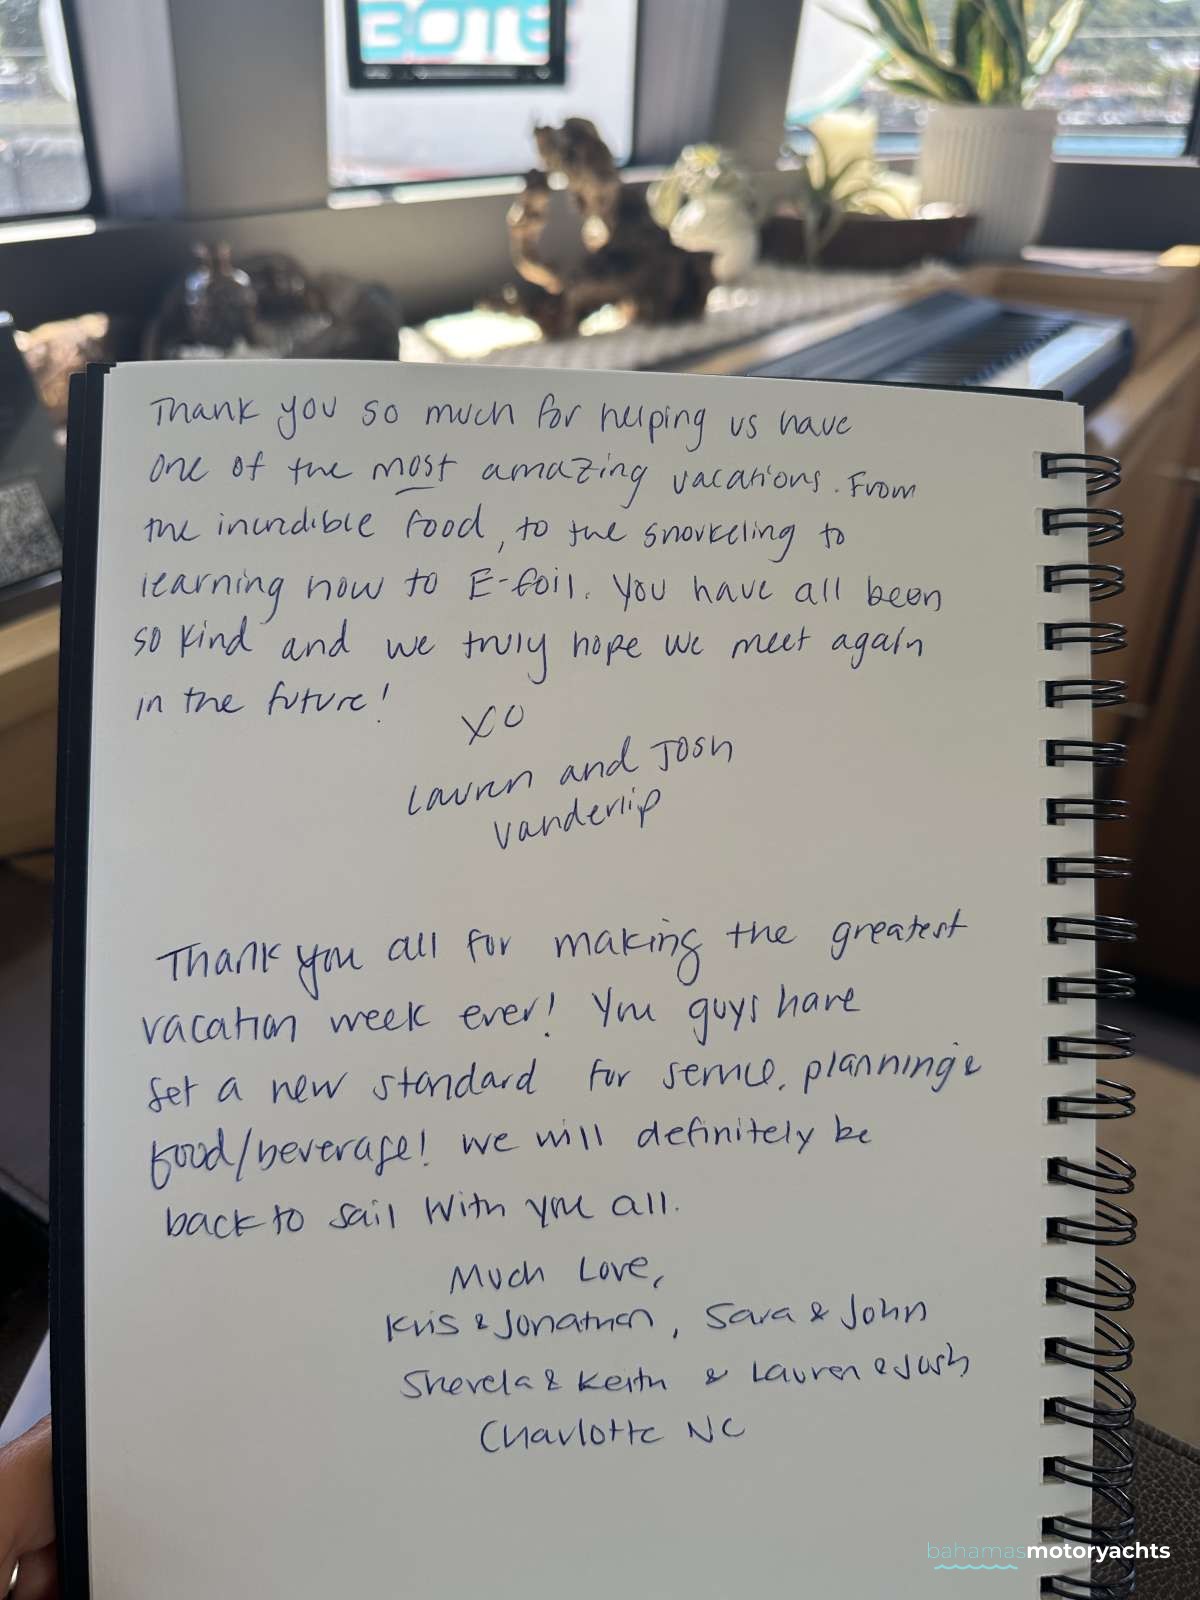 BOTE
Thank you so much for helping us have
one of the most amazing vacations. From
the incredible food, to the snorkeling to
learning how to E-foil. You have all been
so kind and we truly hope we meet again
in the future!
XO
Lauren and Josh
Vanderlip
Thank you all for making the greatest
vacation week ever! You guys have
set a new standard for service, planning &
food/beverage! We will definitely be
back to sail with you all.
Much Love,
Kris & Jonathan, Sara & John
Sherela & Keith & Lauren & Josh
Charlotte NC
bahamasmotoryachts